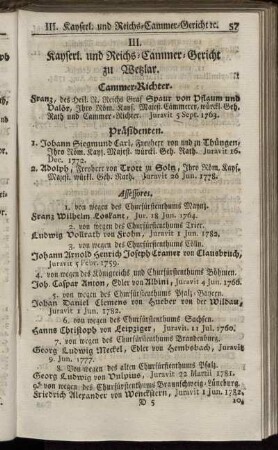 III. Kayserl. und Reichs-Cammer-Gericht ꝛc. 57
III.
Kayserl. und Reichs-Cammer-Gericht
zu Wetzlar.
Cammer-Richter.
Franz, des Heil. R. Reichs Graf Spaur von Pflaum und
Valör, Ihro Röm. Kays. Majest. Cämmerer, würkl. Geh.
Rath und Cammer-Richter. Juravit 5 Sept. 1763.
Präsidenten.
1. Johann Siegmund Carl, Freyherr von und zu Thüngen,
Ihro Röm. Kays. Majest. würkl. Geh. Rath. Juravit 16.
Dec. 1772.
2. Adolph, Freyherr von Trott zu Soltz, Ihro Röm. Kays.
Majest. würkl. Geh. Rath. Juravit 26 Jun. 1778.
Assessores.
1. von wegen des Churfürstenthums Maynz.
Franz Wilhelm Loskant, Jur. 18 Jun. 1764.
2. von wegen des Churfürstenthums Trier.
Ludwig Vollrath von Frohn, Juravit 1 Jun. 1782.
3. von wegen des Churfürstenthums Cölln.
Johann Arnold Henrich Joseph Cramer von Clausbruch,
Juravit 5 Febr. 1759.
4. von wegen des Königreichs und Churfürstenthums Böhmen.
Joh. Caspar Anton, Edler von Albini, Juravit 4 Jun. 1766.
5. von wegen des Churfürstenthums Pfalz-Bayern.
Johan Daniel Clemens von Hueber von der Wildau,
Juravit 1 Jun. 1782.
6. von wegen des Churfürstenthums Sachsen.
Hanns Christoph von Leipziger, Juravit 11 Jul. 1760.
7. von wegen des Churfürstenthums Brandenburg.
Georg Ludwig Meckel, Edler von Hemsbach, Juravit
9. Jun. 1777.
8. Von wegen des alten Churfürstenthums Pfalz.
Georg Ludwig von Vulpius, Juravit 22 Martii 1781.
9. von wegen des Churfürstenthums Braunschweig-Lüneburg.
Friedrich Alexander von Wenckstern, Juravit 1 Jun. 1782.
D 5 10.